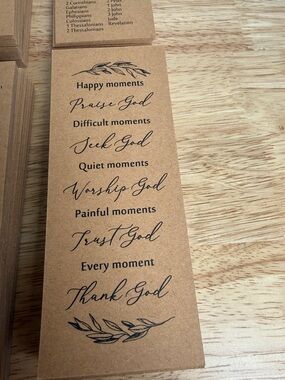 2 Corinthians
Galatians
Ephesians
Philippians
Colossians
1 Thessalonians
2 Thessalonians
2 Peter
1 John
2 John
3 John
Jude
Revelation
Happy moments
Praise God
Difficult moments
Seek God
Quiet moments
Worship God
Painful moments
Trust God
Every moment
Thank God